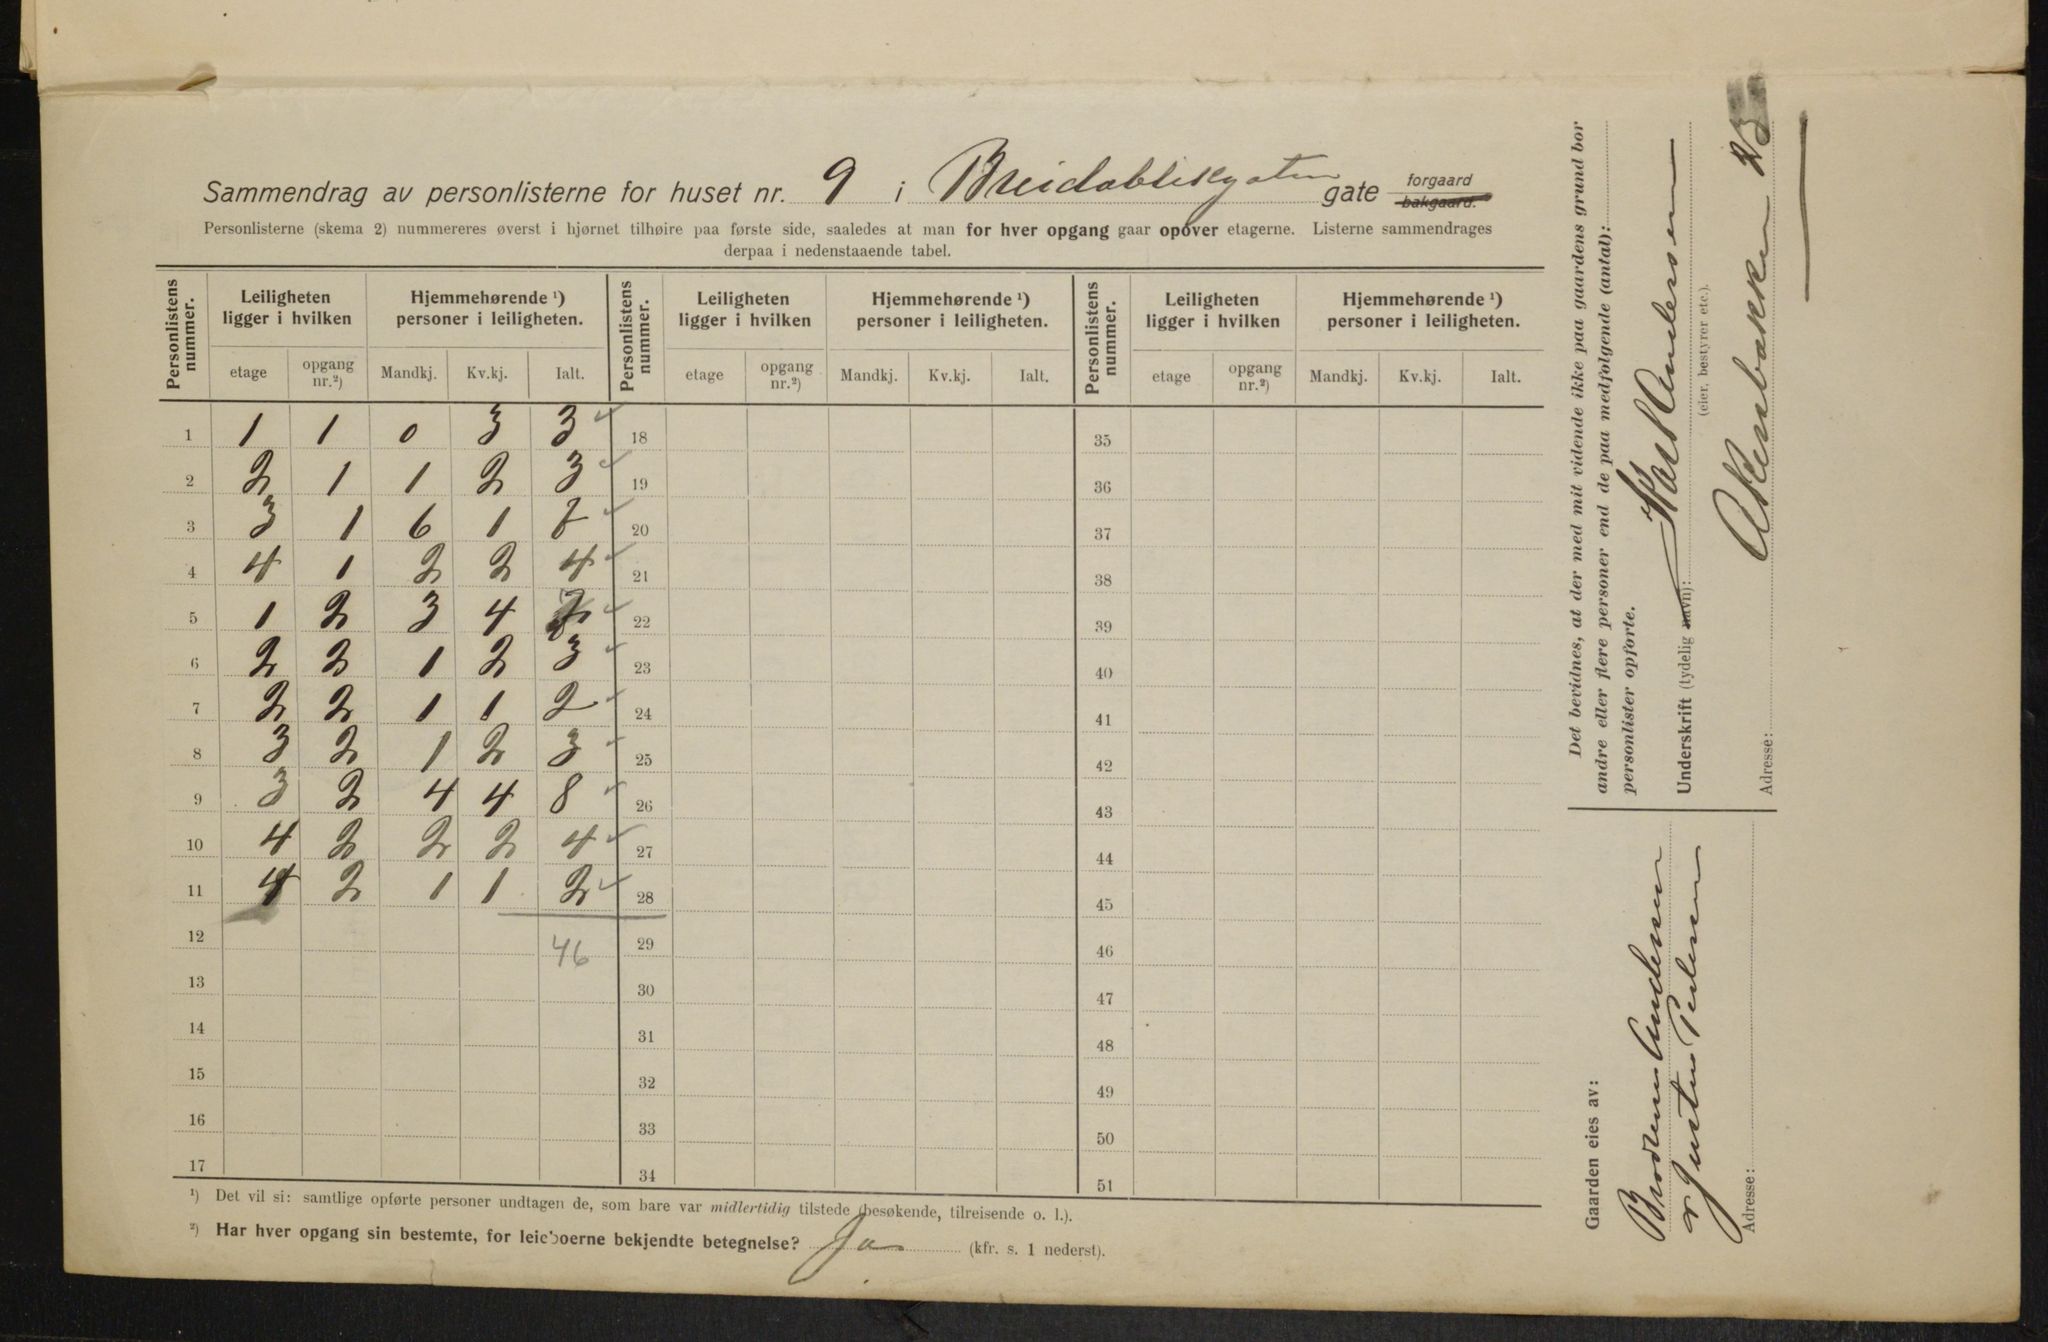 Sammendrag av personlisterne for huset nr. 9 i Breidablikgaten gate forgaard bakgaard.
Personlisterne (skema 2) nummereres øverst i hjørnet tilhøire paa første side, saaledes at man for hver opgang gaar opover etagerne. Listerne sammendrages
derpaa i nedenstaaende tabel.
Personlistens nummer. Leiligheten ligger i hvilken Hjemmehørende ¹) personer i leiligheten. Personlistens nummer. Leiligheten ligger i hvilken Hjemmehørende ¹) personer i leiligheten. Personlistens nummer. Leiligheten ligger i hvilken Hjemmehørende ¹) personer i leiligheten.
etage opgang nr.²) Mandkj. Kv.kj. Ialt. etage opgang nr.²) Mandkj. Kv.kj. Ialt. etage opgang nr.²) Mandkj. Kv.kj. Ialt.
1 1 1 0 3 3 ✓ 18 35
2 2 1 1 2 3 ✓ 19 36
3 3 1 6 1 7 ✓ 20 37
4 4 1 2 2 4 ✓ 21 38
5 1 2 3 4 7 ✓ 22 39
6 2 2 1 2 3 ✓ 23 40
7 2 2 1 1 2 ✓ 24 41
8 3 2 1 2 3 ✓ 25 42
9 3 2 4 4 8 ✓ 26 43
10 4 2 2 2 4 ✓ 27 44
11 4 2 1 1 2 ✓ 28 45
12 46 29 46
13 30 47
14 31 48
15 32 49
16 33 50
17 34 51
¹) Det vil si: samtlige opførte personer undtagen de, som bare var midlertidig tilstede (besøkende, tilreisende o. l.).
²) Har hver opgang sin bestemte, for leieboerne bekjendte betegnelse? Ja (kfr. s. 1 nederst).
Det bevidnes, at der med mit vidende ikke paa gaardens grund bor
andre eller flere personer end de paa medfølgende (antal):
personlister opførte.
Underskrift (tydelig navn): Karl Andersen
(eier, bestyrer etc.).
Adresse: Akersbakken 23
Gaarden eies av:
Brødrene Andersen
Adresse: